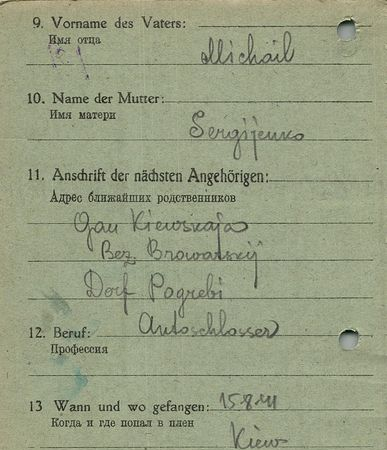 9. Vorname des Vaters:
Имя отца
Michail
10. Name der Mutter:
Имя матери
Sergijenko
11. Anschrift der nächsten Angehörigen:
Адрес ближайших родственников
Gau Kiewskaja
Bez. Browarskij
Dorf Pogrebi
12. Beruf: Autoschlosser
Профессия
13 Wann und wo gefangen: 15.8.41
Когда и где попал в плен
Kiew